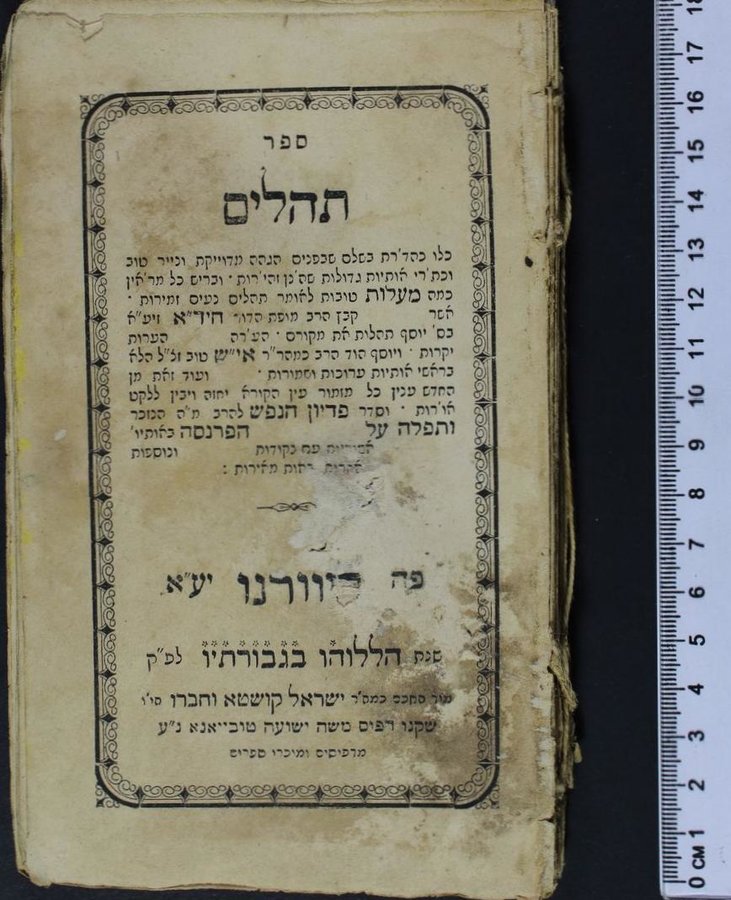 ספר
תהלים
כלו כהד'רת בשלם שבפנים הגהה מדוייקת ונייר טוב
וכת'רי אותיות גדולות שה'נן זהי'רות · ובריש כל מר'אין
כמה מעלות טובות לאומר תהלים נעים זמירות ·
אשר קבץ הרב מופת הדור חיד"א זיע"א
בס' יוסף תהלות את מקורם · הע'רה הערות
יקרות · ויוסף הוד הרב כמהר"ר אי"ש טוב זל"ל הלא
בראשי אותיות ערוכות ושמורות · ועוד זאת מן
החדש ענין כל מזמור עין הקורא יחזה ויבין ללקט
או'רות · וסדר פדיון הנפש להרב מ"ה הנזכר
ותפלה על הפרנסה באותיו'
עם נקודות ונוספות
מאירות :
פה ליוורנו יע"א
שנת הללוהו בגבורתיו לפ"ק
ישראל קושטא וחברו הי"ו
משה ישועה טובייאנא נ"ע
מדפיסים ומוכרי ספרים
18
17
16
15
14
13
12
11
10
9
8
7
6
5
4
3
2
1
0 CM